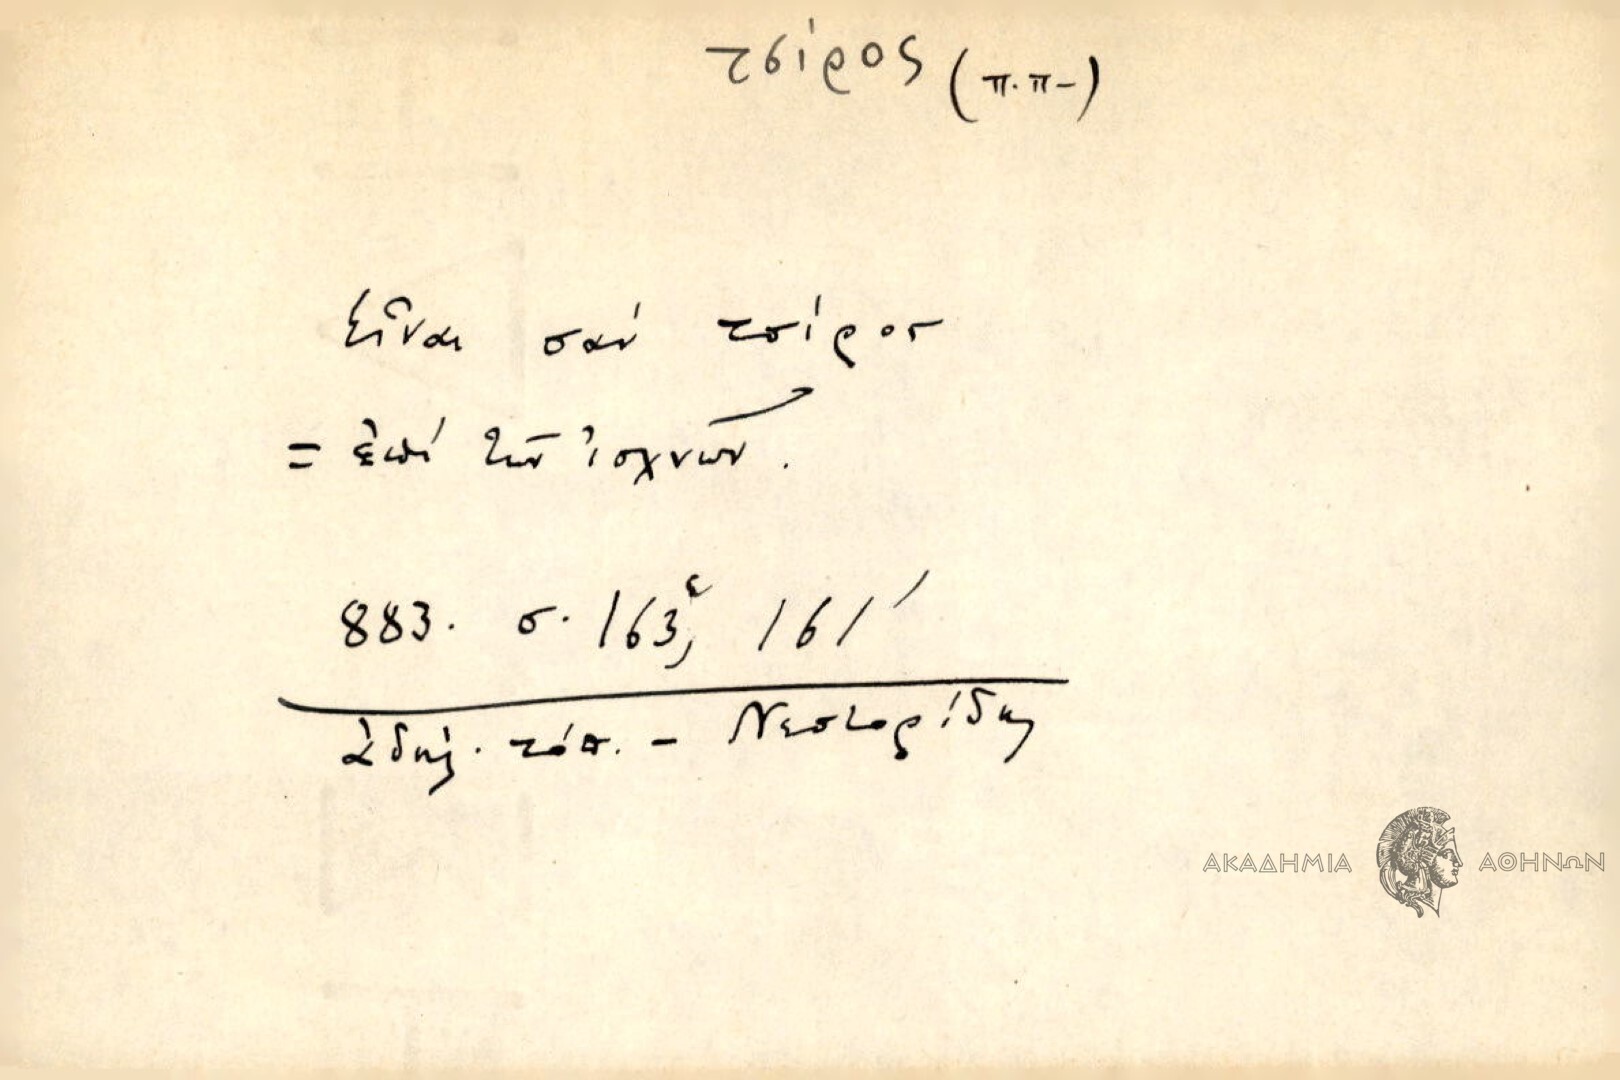 τσίρος (π.π-)
Εἶναι σάν τσίρος
= ἐπί τῶν ἰσχνῶν.
883. σ. 163ε, 161'
ἀδήλ. τόπ. - Νεστορίδης
ΑΚΑΔΗΜΙΑ ΑΘΗΝΩΝ